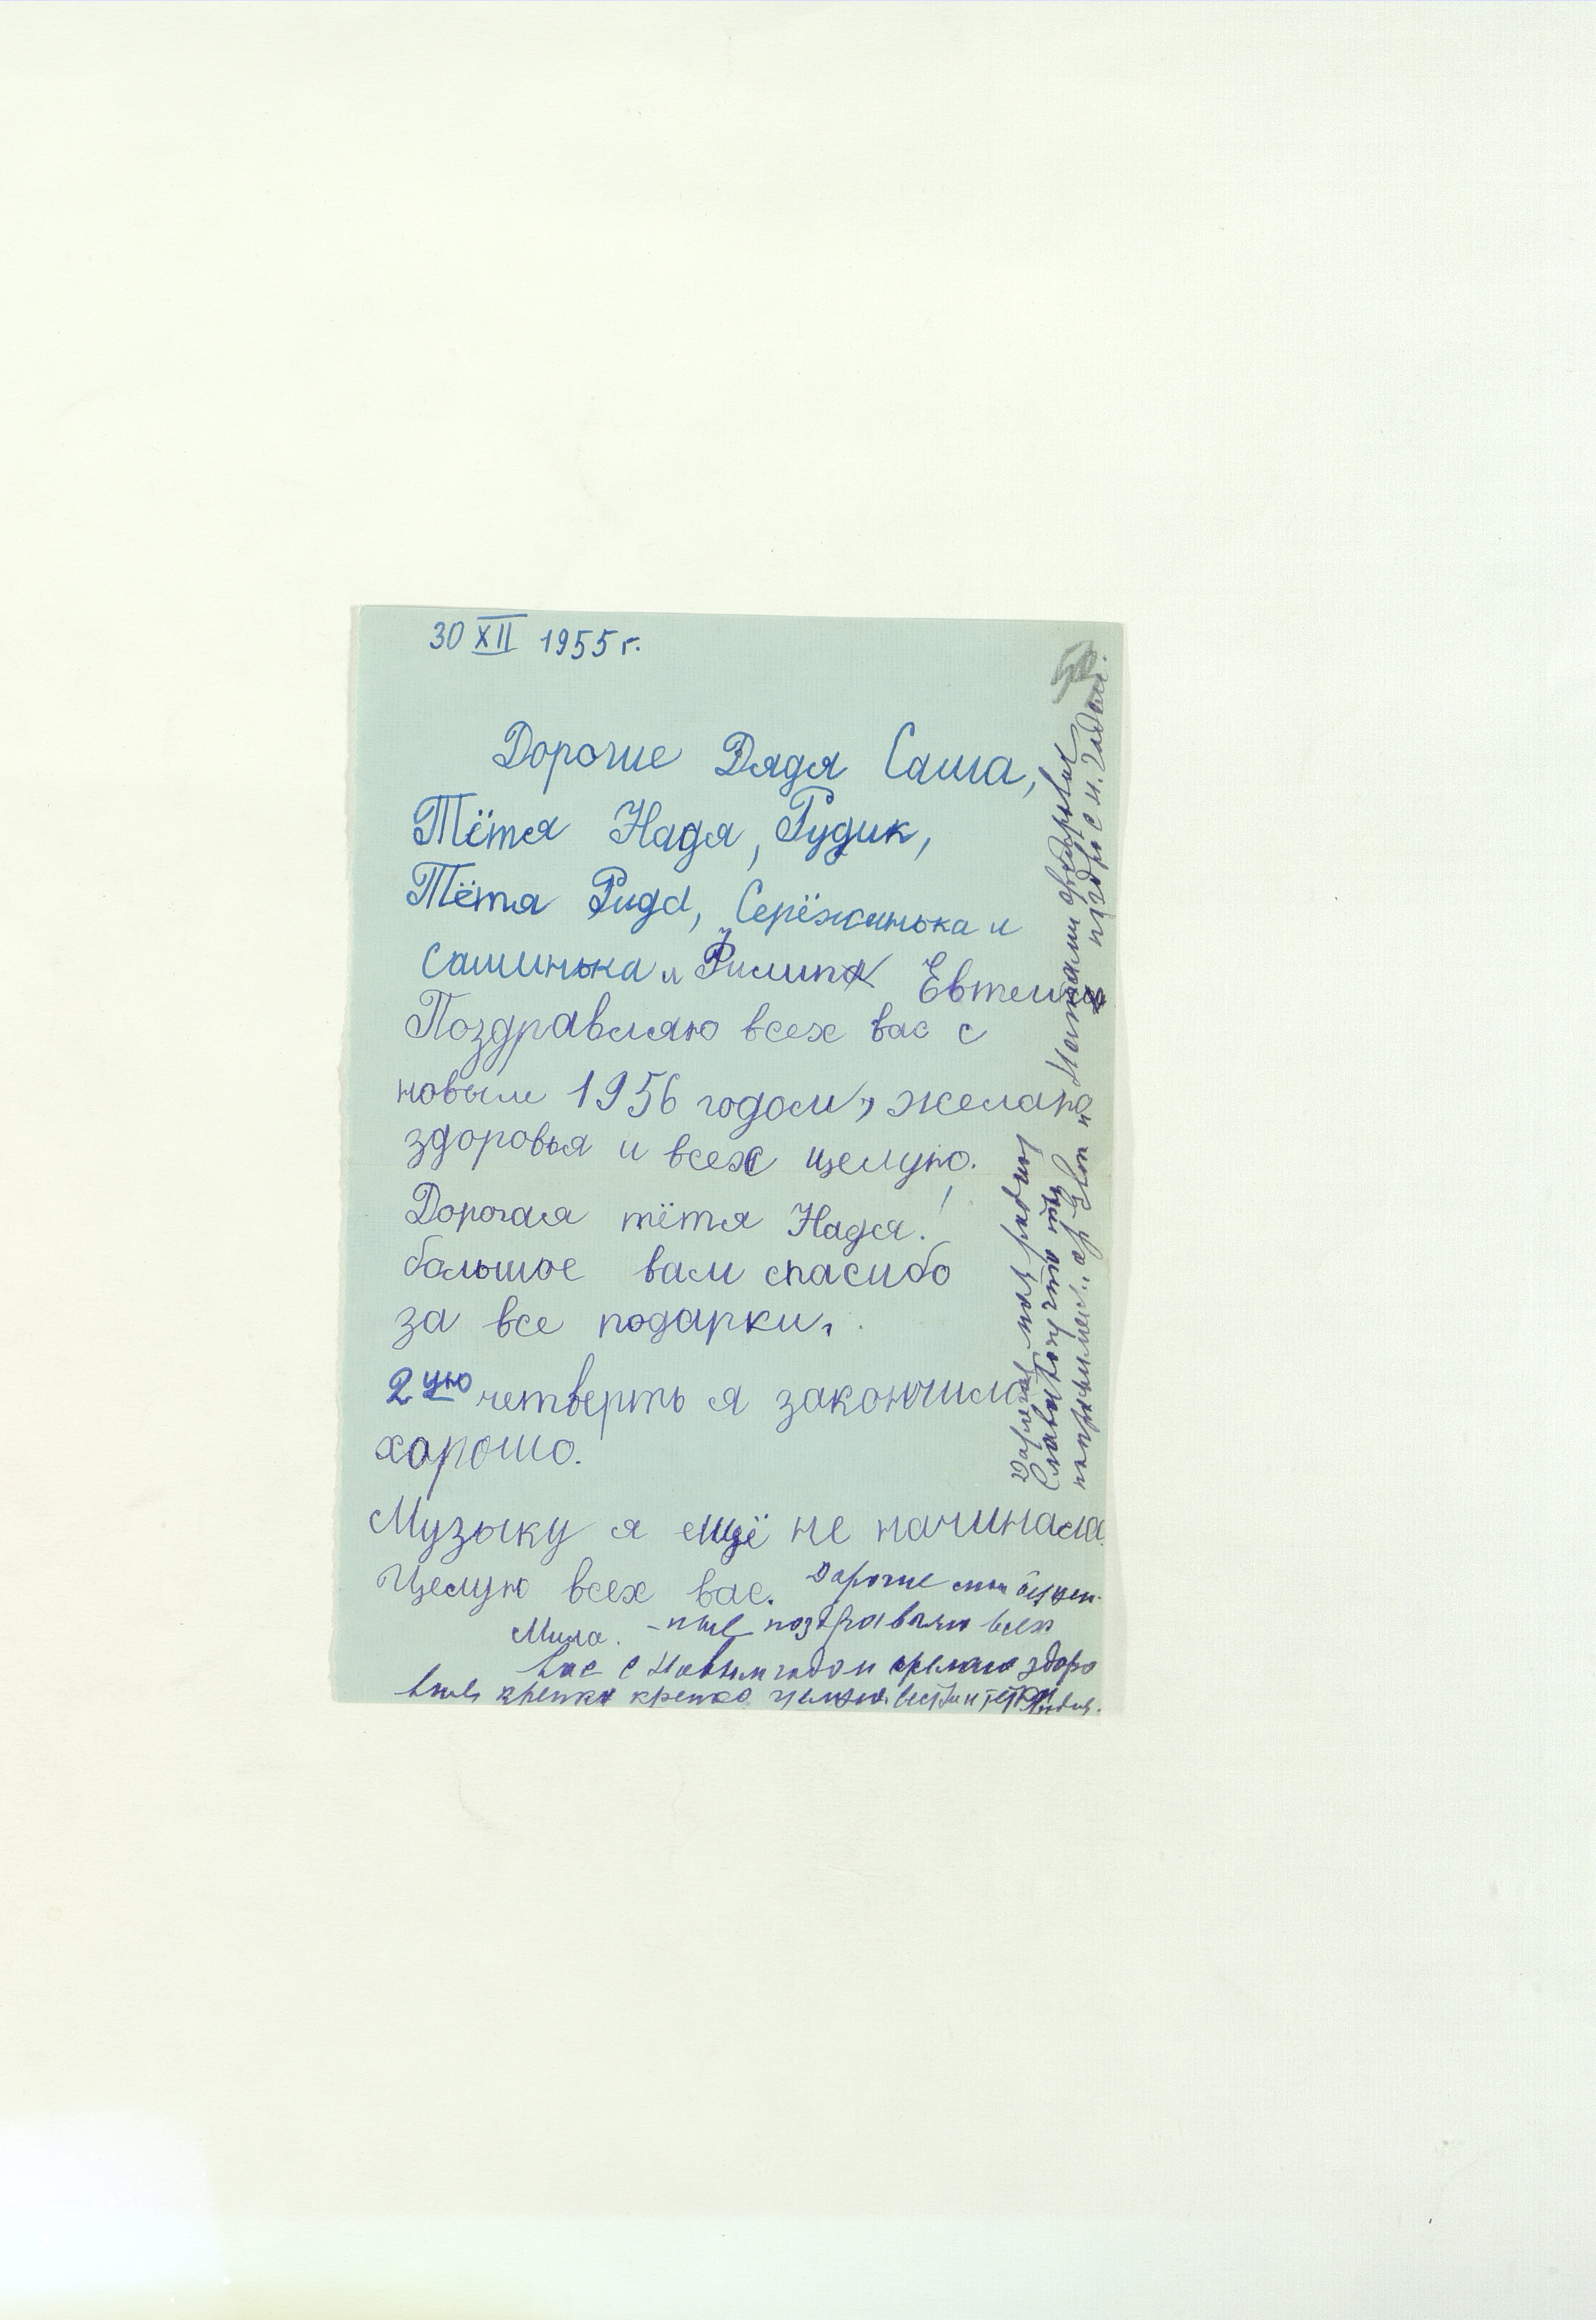 30 XII 1955 г.
Дорогие Дядя Саша,
Тётя Надя, Рудик,
Тётя Рида, Серёжинька и
Сашинька и Филипп Евтеич
Поздравляю всех вас с
новым 1956 годом, желаю
здоровья и всех целую.
Дорогая тётя Надя!
большое вам спасибо
за все подарки.
2ую четверть я закончила
хорошо.
Музыку я ещё не начинала.
Целую всех вас. Дорогие мои
Мила. поздравляю всех
вас с Новым годом желаю здоро
вья крепко крепко целую
Дорогая моя
что
и
с н. годом.